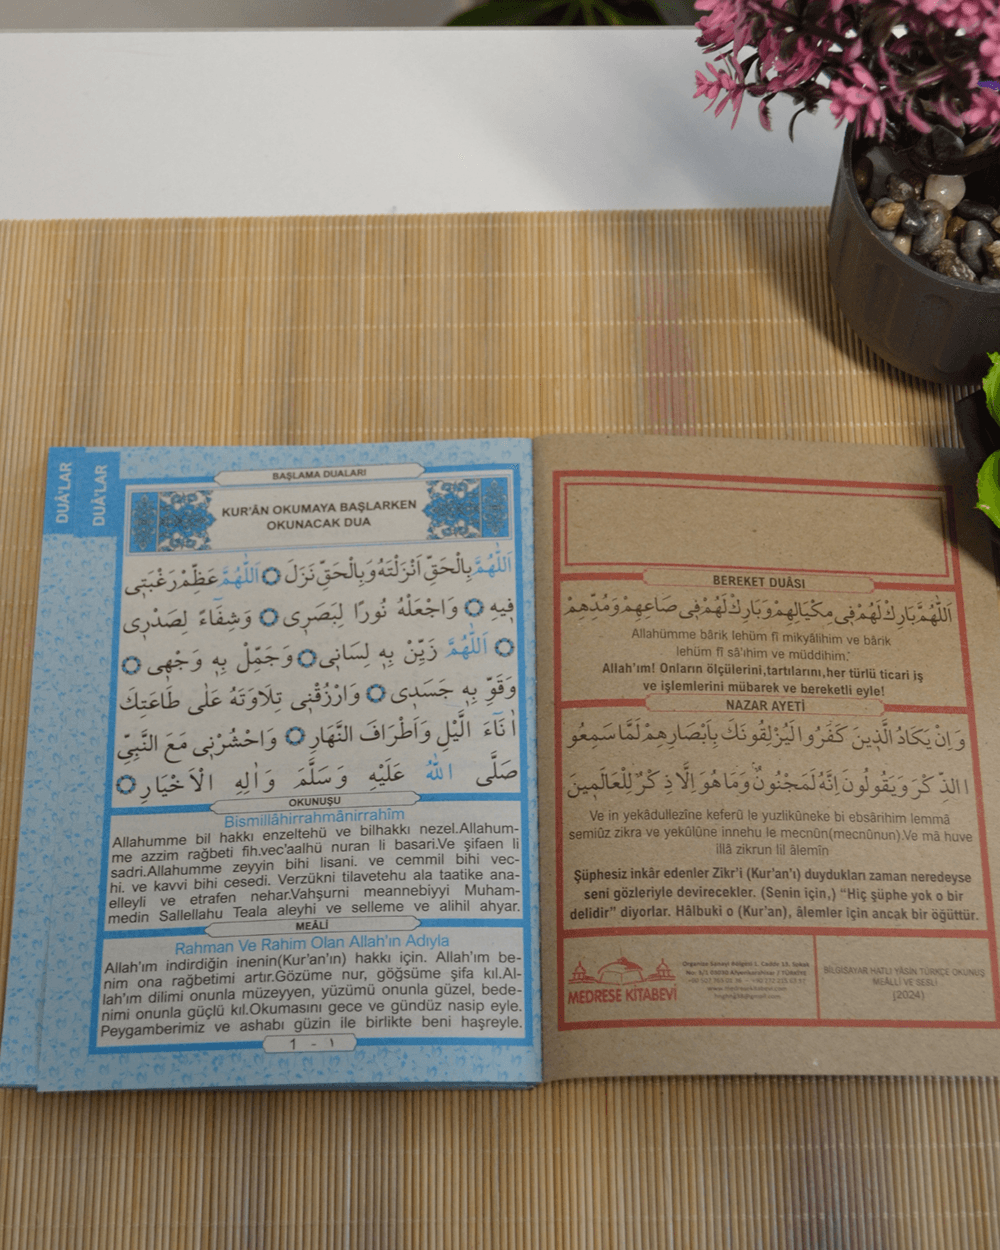 DUÂ'LAR
DUÂ'LAR
BAŞLAMA DUALARI
KUR'ÂN OKUMAYA BAŞLARKEN
OKUNACAK DUA
اَللّٰهُمَّ بِالْحَقِّ اَنْزَلْتَهُ وَبِالْحَقِّ نَزَلَ ۞ اَللّٰهُمَّ عَظِّمْ رَغْبَتِى
فِيهِ ۞ وَاجْعَلْهُ نُورًا لِبَصَرِى ۞ وَشِفَٓاءً لِصَدْرِى
۞ اَللّٰهُمَّ زَيِّنْ بِهِ لِسَانِى ۞ وَجَمِّلْ بِهِ وَجْهِى ۞
وَقَوِّ بِهِ جَسَدِى ۞ وَارْزُقْنِى تِلَاوَتَهُ عَلٰى طَاعَتِكَ
اٰنَٓاءَ الَّيْلِ وَاَطْرَافَ النَّهَارِ ۞ وَاحْشُرْنِى مَعَ النَّبِىِّ
صَلَّى اللهُ عَلَيْهِ وَسَلَّمَ وَاٰلِهِ الْاَخْيَارِ ۞
OKUNUŞU
Bismillâhirrahmânirrahîm
Allahumme bil hakkı enzeltehü ve bilhakkı nezel.Allahum-
me azzim rağbeti fih.vec'aalhü nuran li basari.Ve şifaen li
sadri.Allahumme zeyyin bihi lisani. ve cemmil bihi vec-
hi. ve kavvi bihi cesedi. Verzükni tilavetehu ala taatike ana-
elleyli ve etrafen nehar.Vahşurni meannebiyyi Muham-
medin Sallellahu Teala aleyhi ve selleme ve alihil ahyar.
MEÂLİ
Rahman Ve Rahim Olan Allah'ın Adıyla
Allah'ım indirdiğin inenin(Kur'an'ın) hakkı için. Allah'ım be-
nim ona rağbetimi artır.Gözüme nur, göğsüme şifa kıl.Al-
lah'ım dilimi onunla müzeyyen, yüzümü onunla güzel, bede-
nimi onunla güçlü kıl.Okumasını gece ve gündüz nasip eyle.
Peygamberimiz ve ashabı güzin ile birlikte beni haşreyle.
1 - ١
BEREKET DUÂSI
اَللّٰهُمَّ بَارِكْ لَهُمْ فِى مِكْيَالِهِمْ وَبَارِكْ لَهُمْ فِى صَاعِهِمْ وَمُدِّهِمْ
Allahümme bârik lehüm fî mikyâlihim ve bârik
lehüm fî sâ'ıhim ve müddihim.
Allah'ım! Onların ölçülerini,tartılarını,her türlü ticari iş
ve işlemlerini mübarek ve bereketli eyle!
NAZAR AYETİ
وَاِنْ يَكَادُ الَّذِينَ كَفَرُوا لَيُزْلِقُونَكَ بِاَبْصَارِهِمْ لَمَّا سَمِعُو
االذِّكْرَ وَيَقُولُونَ اِنَّهُ لَمَجْنُونٌ وَمَا هُوَ اِلَّا ذِكْرٌ لِلْعَالَمِينَ
Ve in yekâdullezîne keferû le yuzlikûneke bi ebsârihim lemmâ
semiûz zikra ve yekûlûne innehu le mecnûn(mecnûnun).Ve mâ huve
illâ zikrun lil âlemîn
Şüphesiz inkâr edenler Zikr'i (Kur'an'ı) duydukları zaman neredeyse
seni gözleriyle devirecekler. (Senin için,) “Hiç şüphe yok o bir
delidir” diyorlar. Hâlbuki o (Kur'an), âlemler için ancak bir öğüttür.
MEDRESE KİTABEVİ
Organize Sanayi Bölgesi 1. Cadde 10. Sokak
BİLGİSAYAR HATLI YÂSİN TÜRKÇE OKUNUŞ
MEÂLLİ VE SESLİ
(2024)